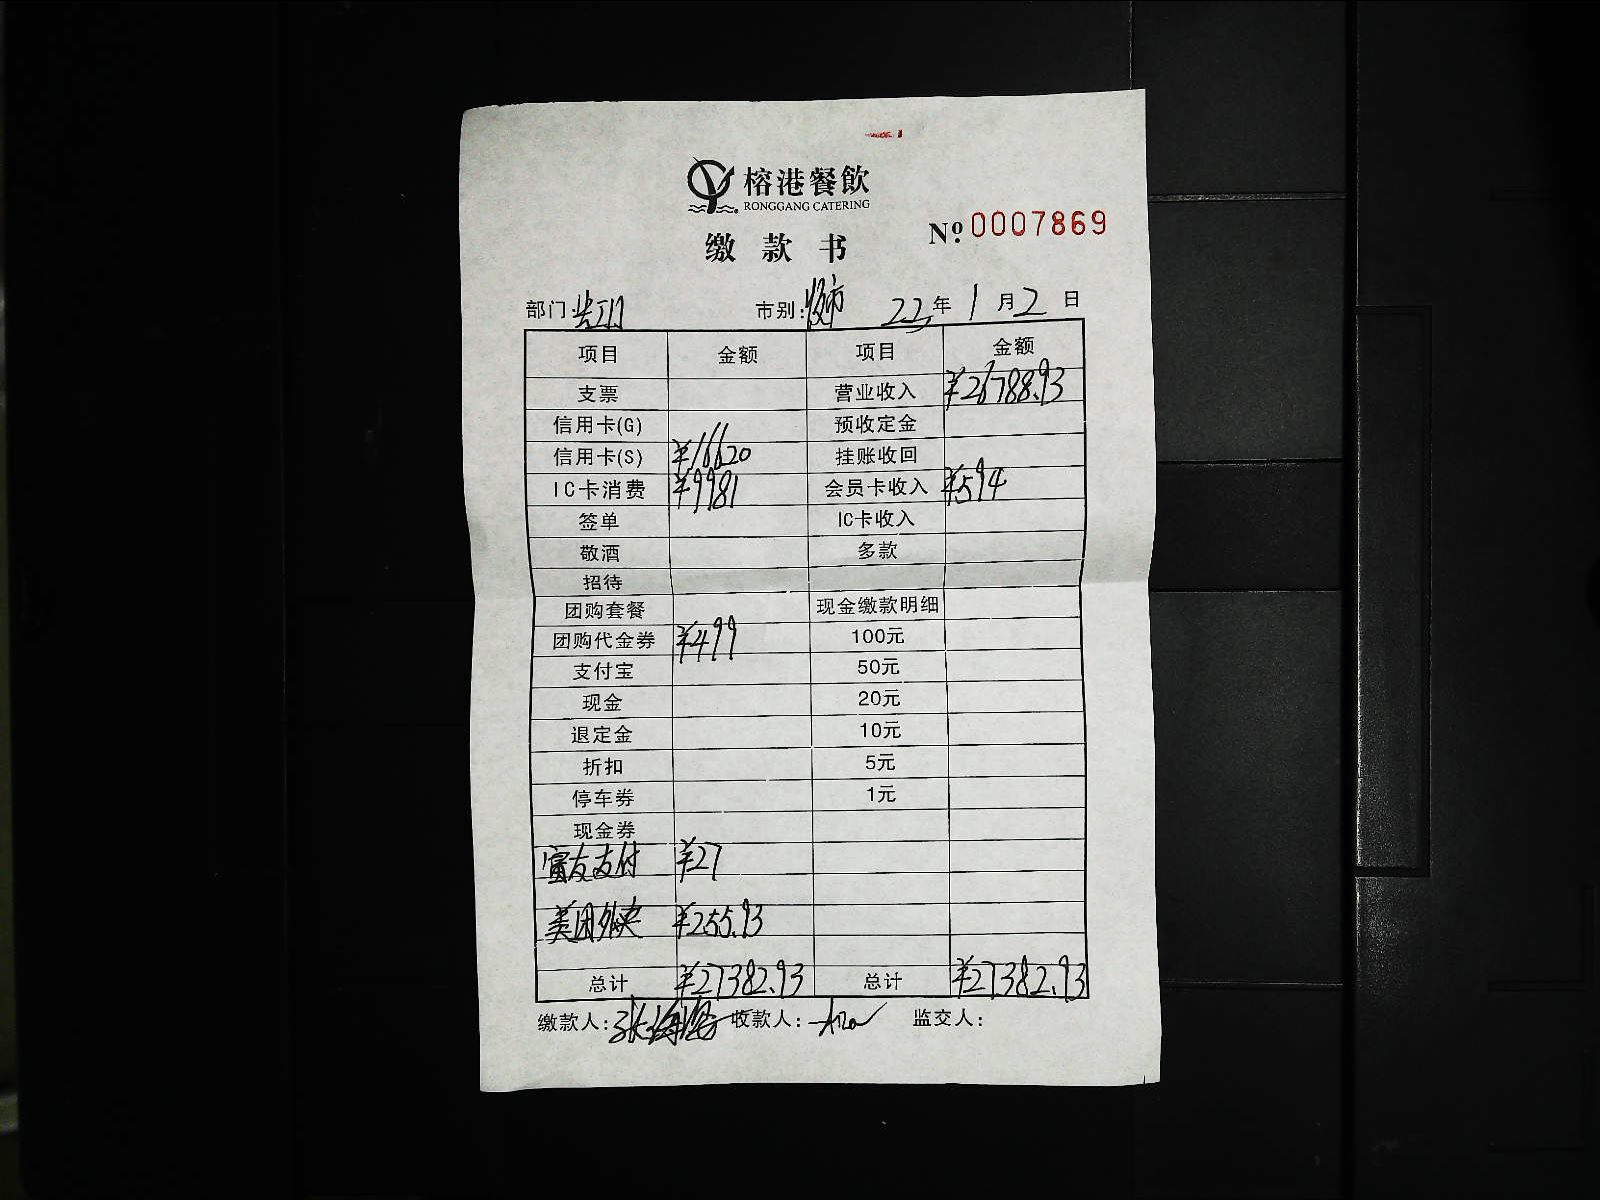 榕港餐飲
RONGGANG CATERING
№ 0007869
缴款书
部门: 市别:夜市 22年1月2日
项目 金额 项目 金额
支票 营业收入 ¥26788.93
信用卡(G) 预收定金
信用卡(S) ¥16620 挂账收回
IC卡消费 ¥9981 会员卡收入 ¥594
签单 IC卡收入
敬酒 多款
招待
团购套餐 现金缴款明细
团购代金券 ¥499 100元
支付宝 50元
现金 20元
退定金 10元
折扣 5元
停车券 1元
现金券
富友支付 ¥27
美团外卖 ¥255.93
总计 ¥27382.93 总计 ¥27382.93
缴款人:张海 收款人: 监交人: